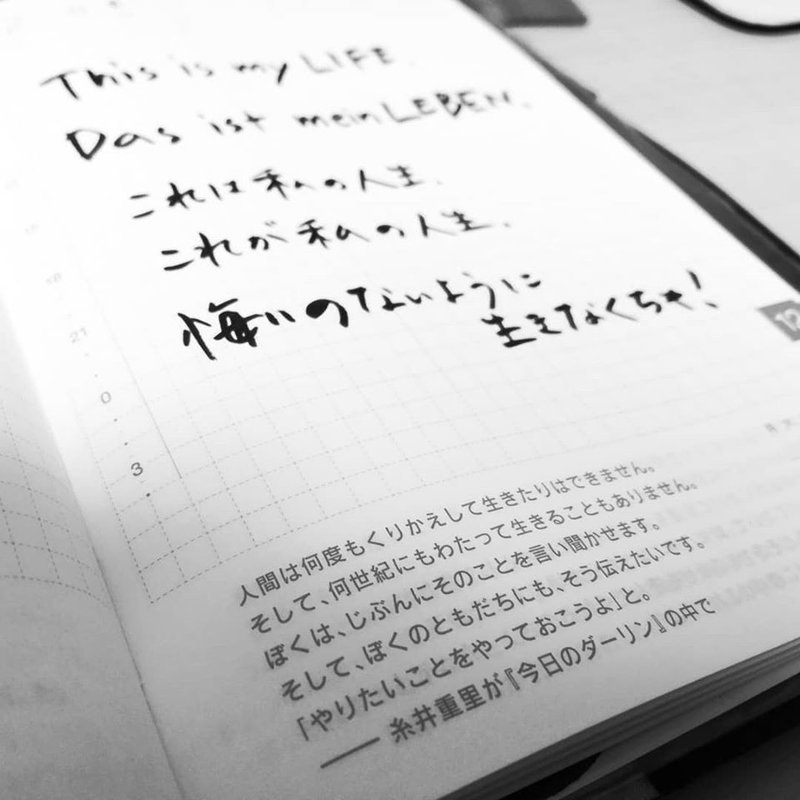 This is my LIFE.
Das ist mein LEBEN.
これは私の人生.
これが私の人生.
悔いのないように
生きなくちゃ!
12
21
0
3
人間は何度もくりかえして生きたりはできません。
そして、何世紀にもわたって生きることもありません。
ぼくは、じぶんにそのことを言い聞かせます。
そして、ぼくのともだちにも、そう伝えたいです。
「やりたいことをやっておこうよ」と。
── 糸井重里が『今日のダーリン』の中で